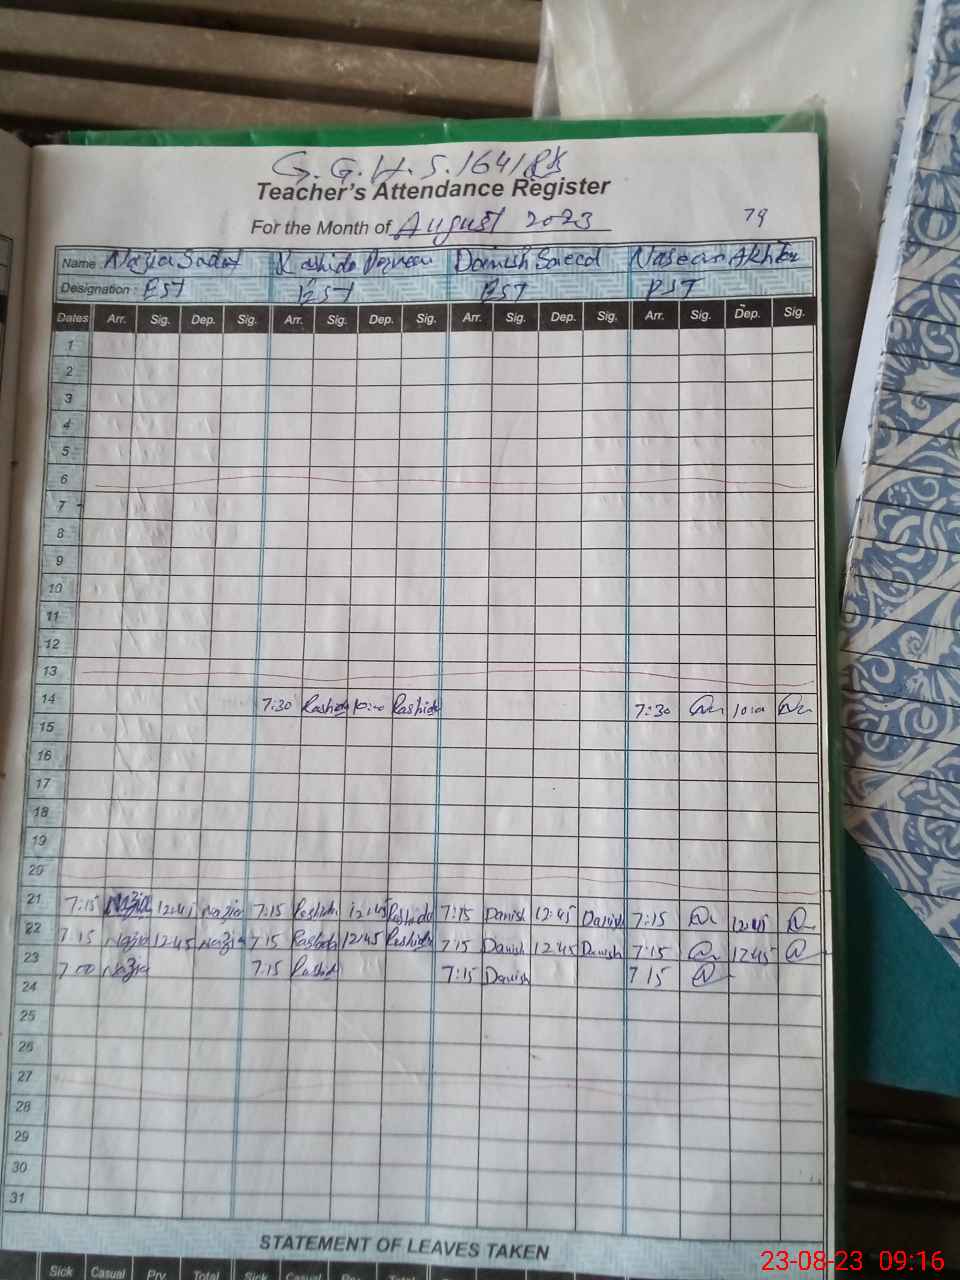 G.G.H.S. 164/
Teacher's Attendance Register
For the Month of August 2023 79
Name : Nazia Sadaf Rashida Parveen Danish Saeed Naseem Akhtar
Designation : EST EST EST PST
Dates Arr. Sig. Dep. Sig. Arr. Sig. Dep. Sig. Arr. Sig. Dep. Sig. Arr. Sig. Dep. Sig.
1
2
3
4
5
6
7
8
9
10
11
12
13
14 7:30 Rashida 10:00 Rashida 7:30 10:00
15
16
17
18
19
20
21 7:15 Nazia 12:45 Nazia 7:15 Rashida 12:45 Rashida 7:15 Danish 12:45 Danish 7:15 12:45
22 7:15 Nazia 12:45 Nazia 7:15 Rashida 12:45 Rashida 7:15 Danish 12:45 Danish 7:15 12:45
23 7:00 Nazia 7:15 Rashida 7:15 Danish 7:15
24
25
26
27
28
29
30
31
STATEMENT OF LEAVES TAKEN
Sick Casual Prv. Total Sick Casual
23-08-23 09:16